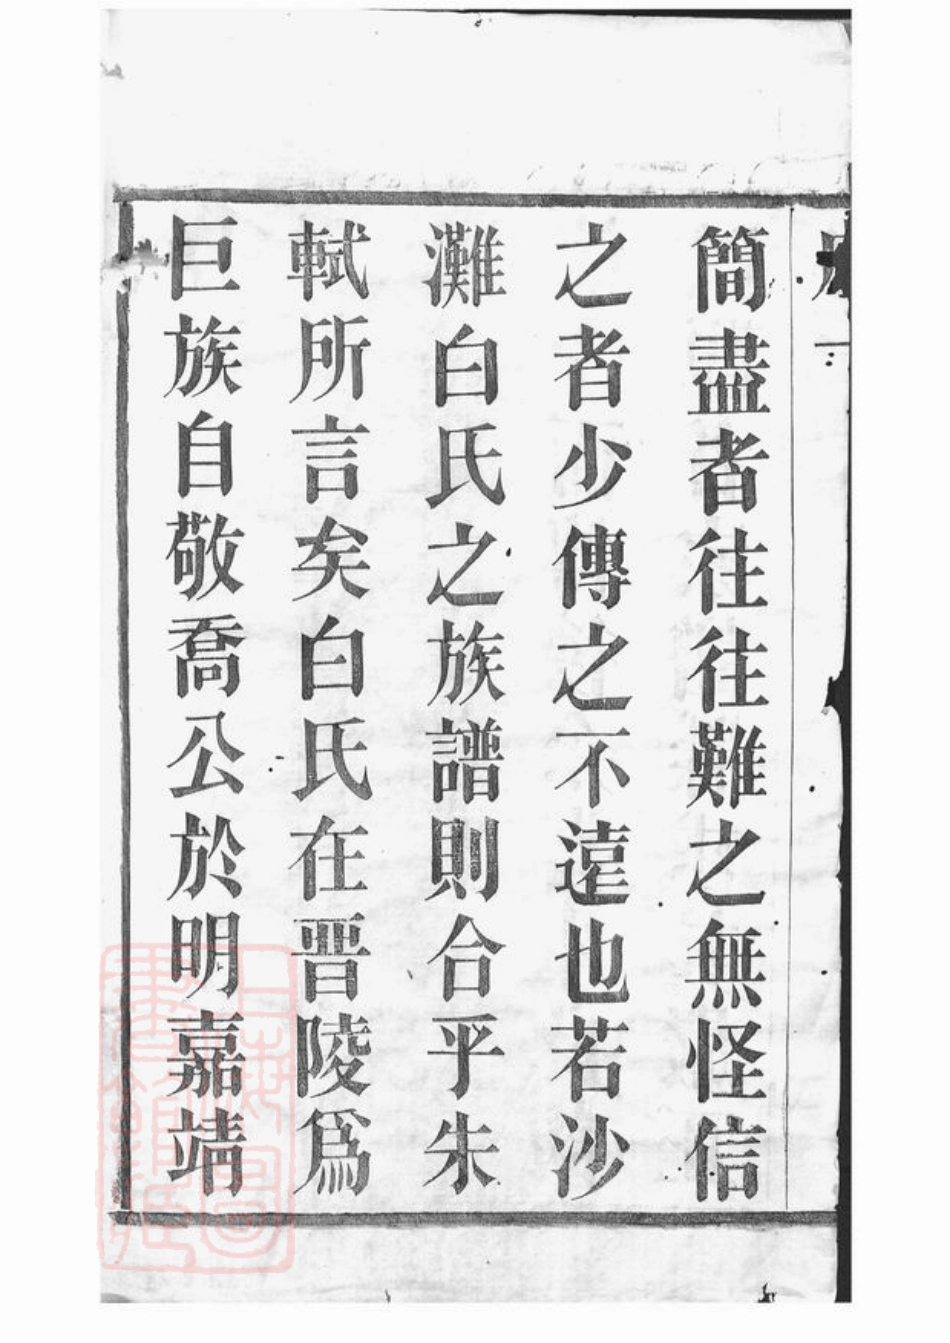 簡盡者往往難之無怪信
之者少傳之不遠也若沙
灘白氏之族譜則合乎朱
軾所言矣白氏在晋陵爲
巨族自敬喬公於明嘉靖
上海圖書館藏